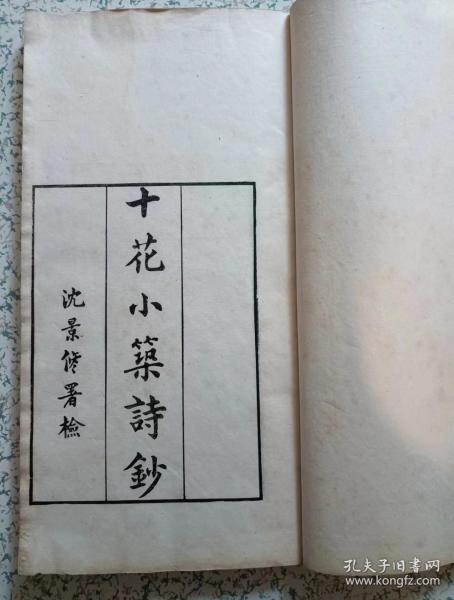 十花小築詩鈔
沈景修署檢
孔夫子旧書网
www.kongfz.com